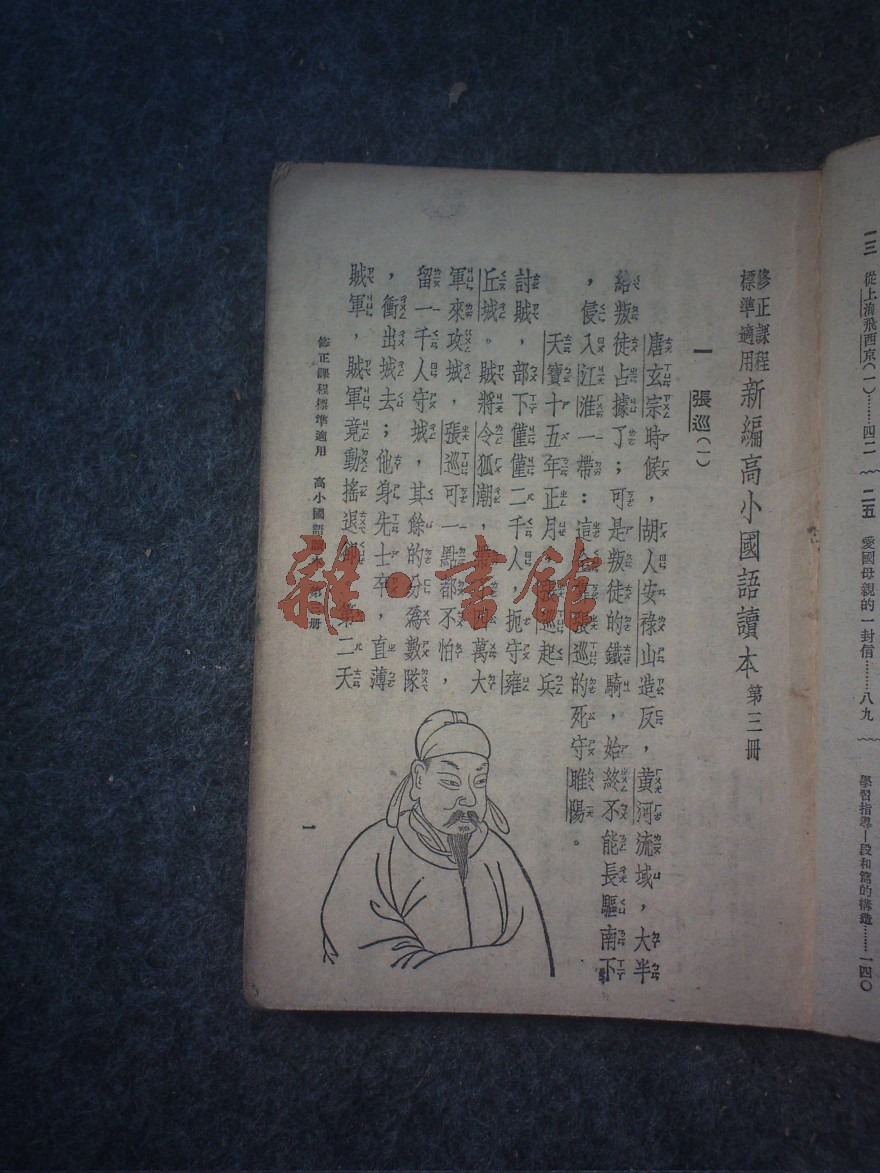 一三 從上海飛西京(一)……四二
二五 愛國母親的一封信……八九
學習指導—段和篇的構造……一四〇
修正課程
標準適用
新編高小國語讀本 第三冊
一 張巡(一)
唐玄宗時候,胡人安祿山造反,黃河流域,大半
給叛徒占據了;可是叛徒的鐵騎,始終不能長驅南下
,侵入江淮一帶:這張巡的死守睢陽。
天寶十五年正月,張巡起兵
討賊,部下僅僅二千人,扼守雍
丘城。賊將令狐潮,萬大
軍來攻城,張巡可一點都不怕,
留一千人守城,其餘的分為數隊
,衝出城去;他身先士卒,直薄
賊軍,賊軍竟動搖退卻。第二天
修正課程標準適用 高小國語讀本 冊
一
雜·書館